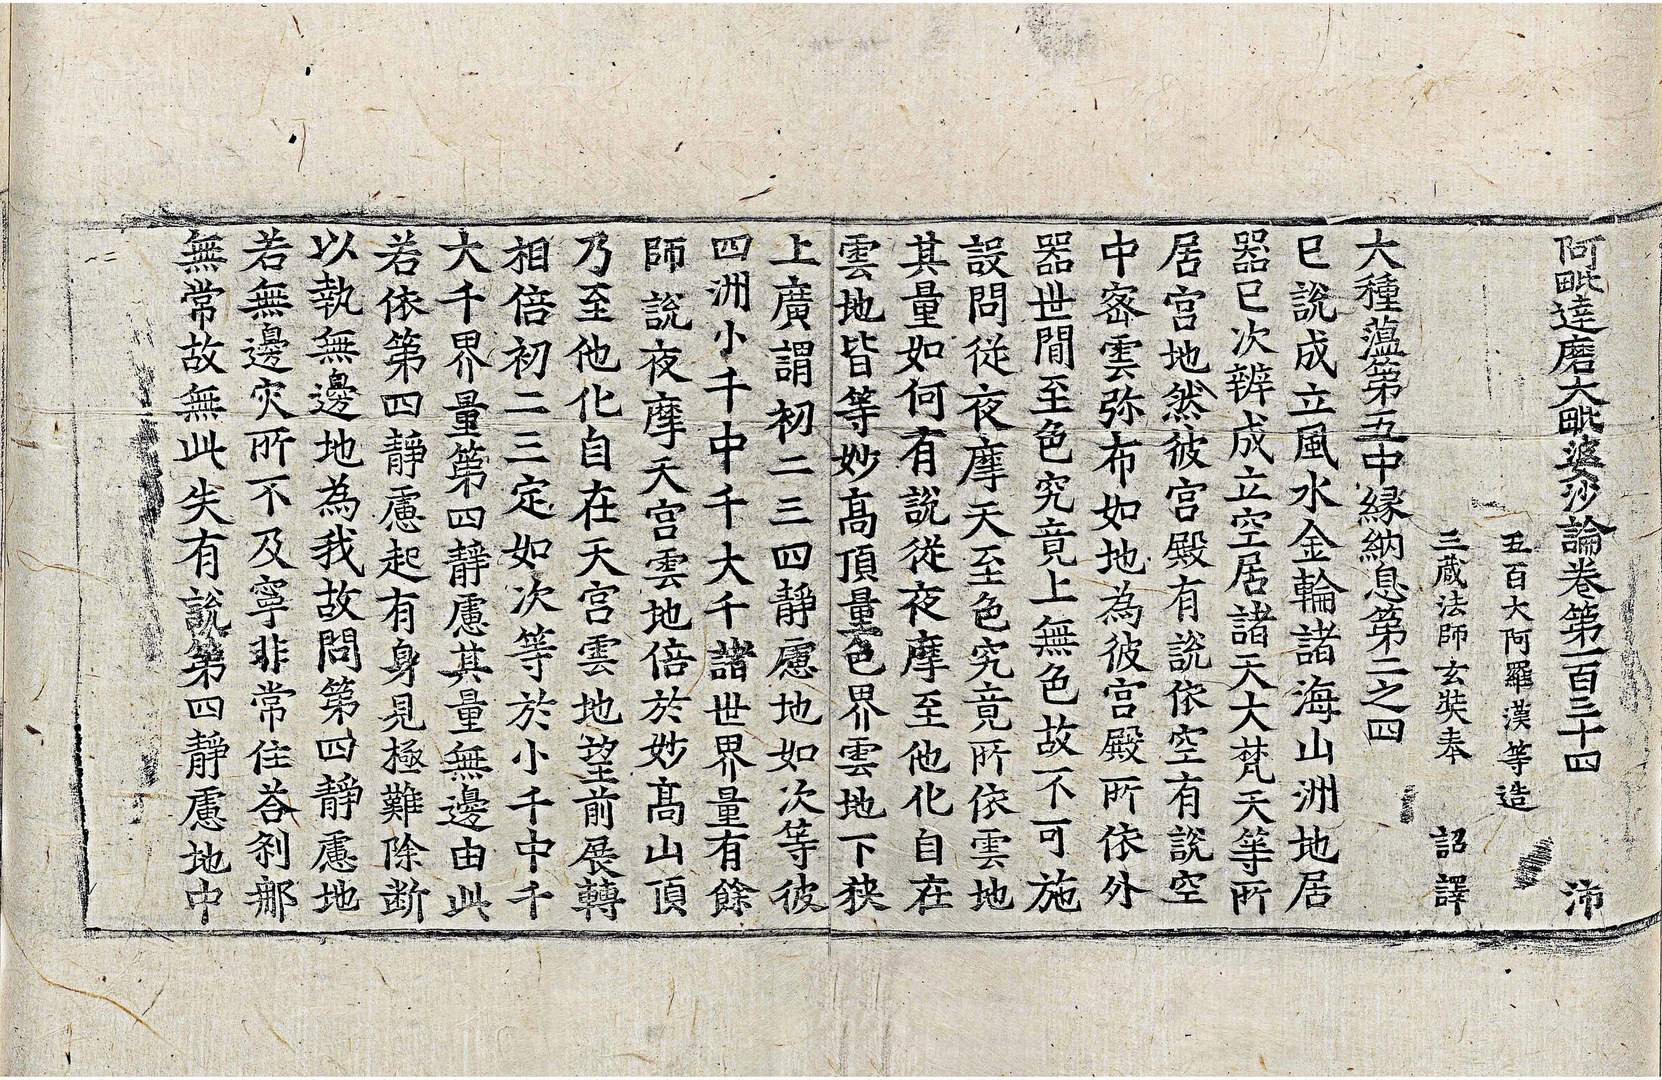 阿毗達磨大毗婆沙論卷第一百三十四　沛
五百大阿羅漢等造
三蔵法師玄奘奉　詔譯
大種藴第五中緣納息第二之四
巳說成立風水金輪諸海山洲地居
器巳次辨成立空居諸天大梵天等所
居宮地然彼宮殿有說依空有說空
中密雲弥布如地為彼宮殿所依外
器世間至色究竟上無色故不可施
設問從夜摩天至色究竟所依雲地
其量如何有說從夜摩至他化自在
雲地皆等妙高頂量色界雲地下狹
上廣謂初二三四靜慮地如次等彼
四洲小千中千大千諸世界量有餘
師說夜摩天宮雲地倍於妙高山頂
乃至他化自在天宮雲地望前展轉
相倍初二三定如次等於小千中千
大千界量第四靜慮其量無邊由此
若依第四靜慮起有身見極難除断
以執無邊地為我故問第四靜慮地
若無邊灾所不及寧非常住荅刹那
無常故無此失有說第四靜慮地中